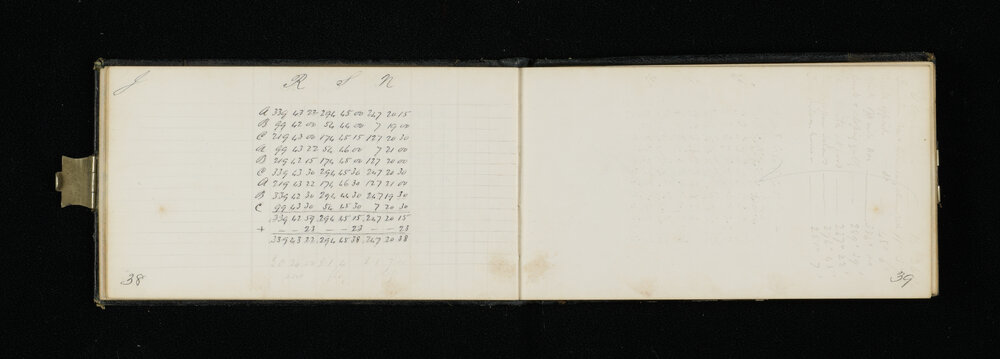 J R S N
A 339 43 22 294 45 00 247 20 15
B 99 42 00 54 44 00 7 19 00
C 219 43 00 174 45 15 127 20 30
A 99 43 22 54 46 00 7 21 00
B 219 42 15 174 45 00 127 20 00
C 339 43 30 294 45 30 247 20 30
A 219 43 22 174 46 30 127 21 00
B 339 42 30 294 44 30 247 19 30
C 99 43 30 54 45 30 7 20 30
339 42 59 294 45 15 247 20 15
+ – – 23 – – 23 – – 23
339 43 22 294 45 38 247 20 38
38
39